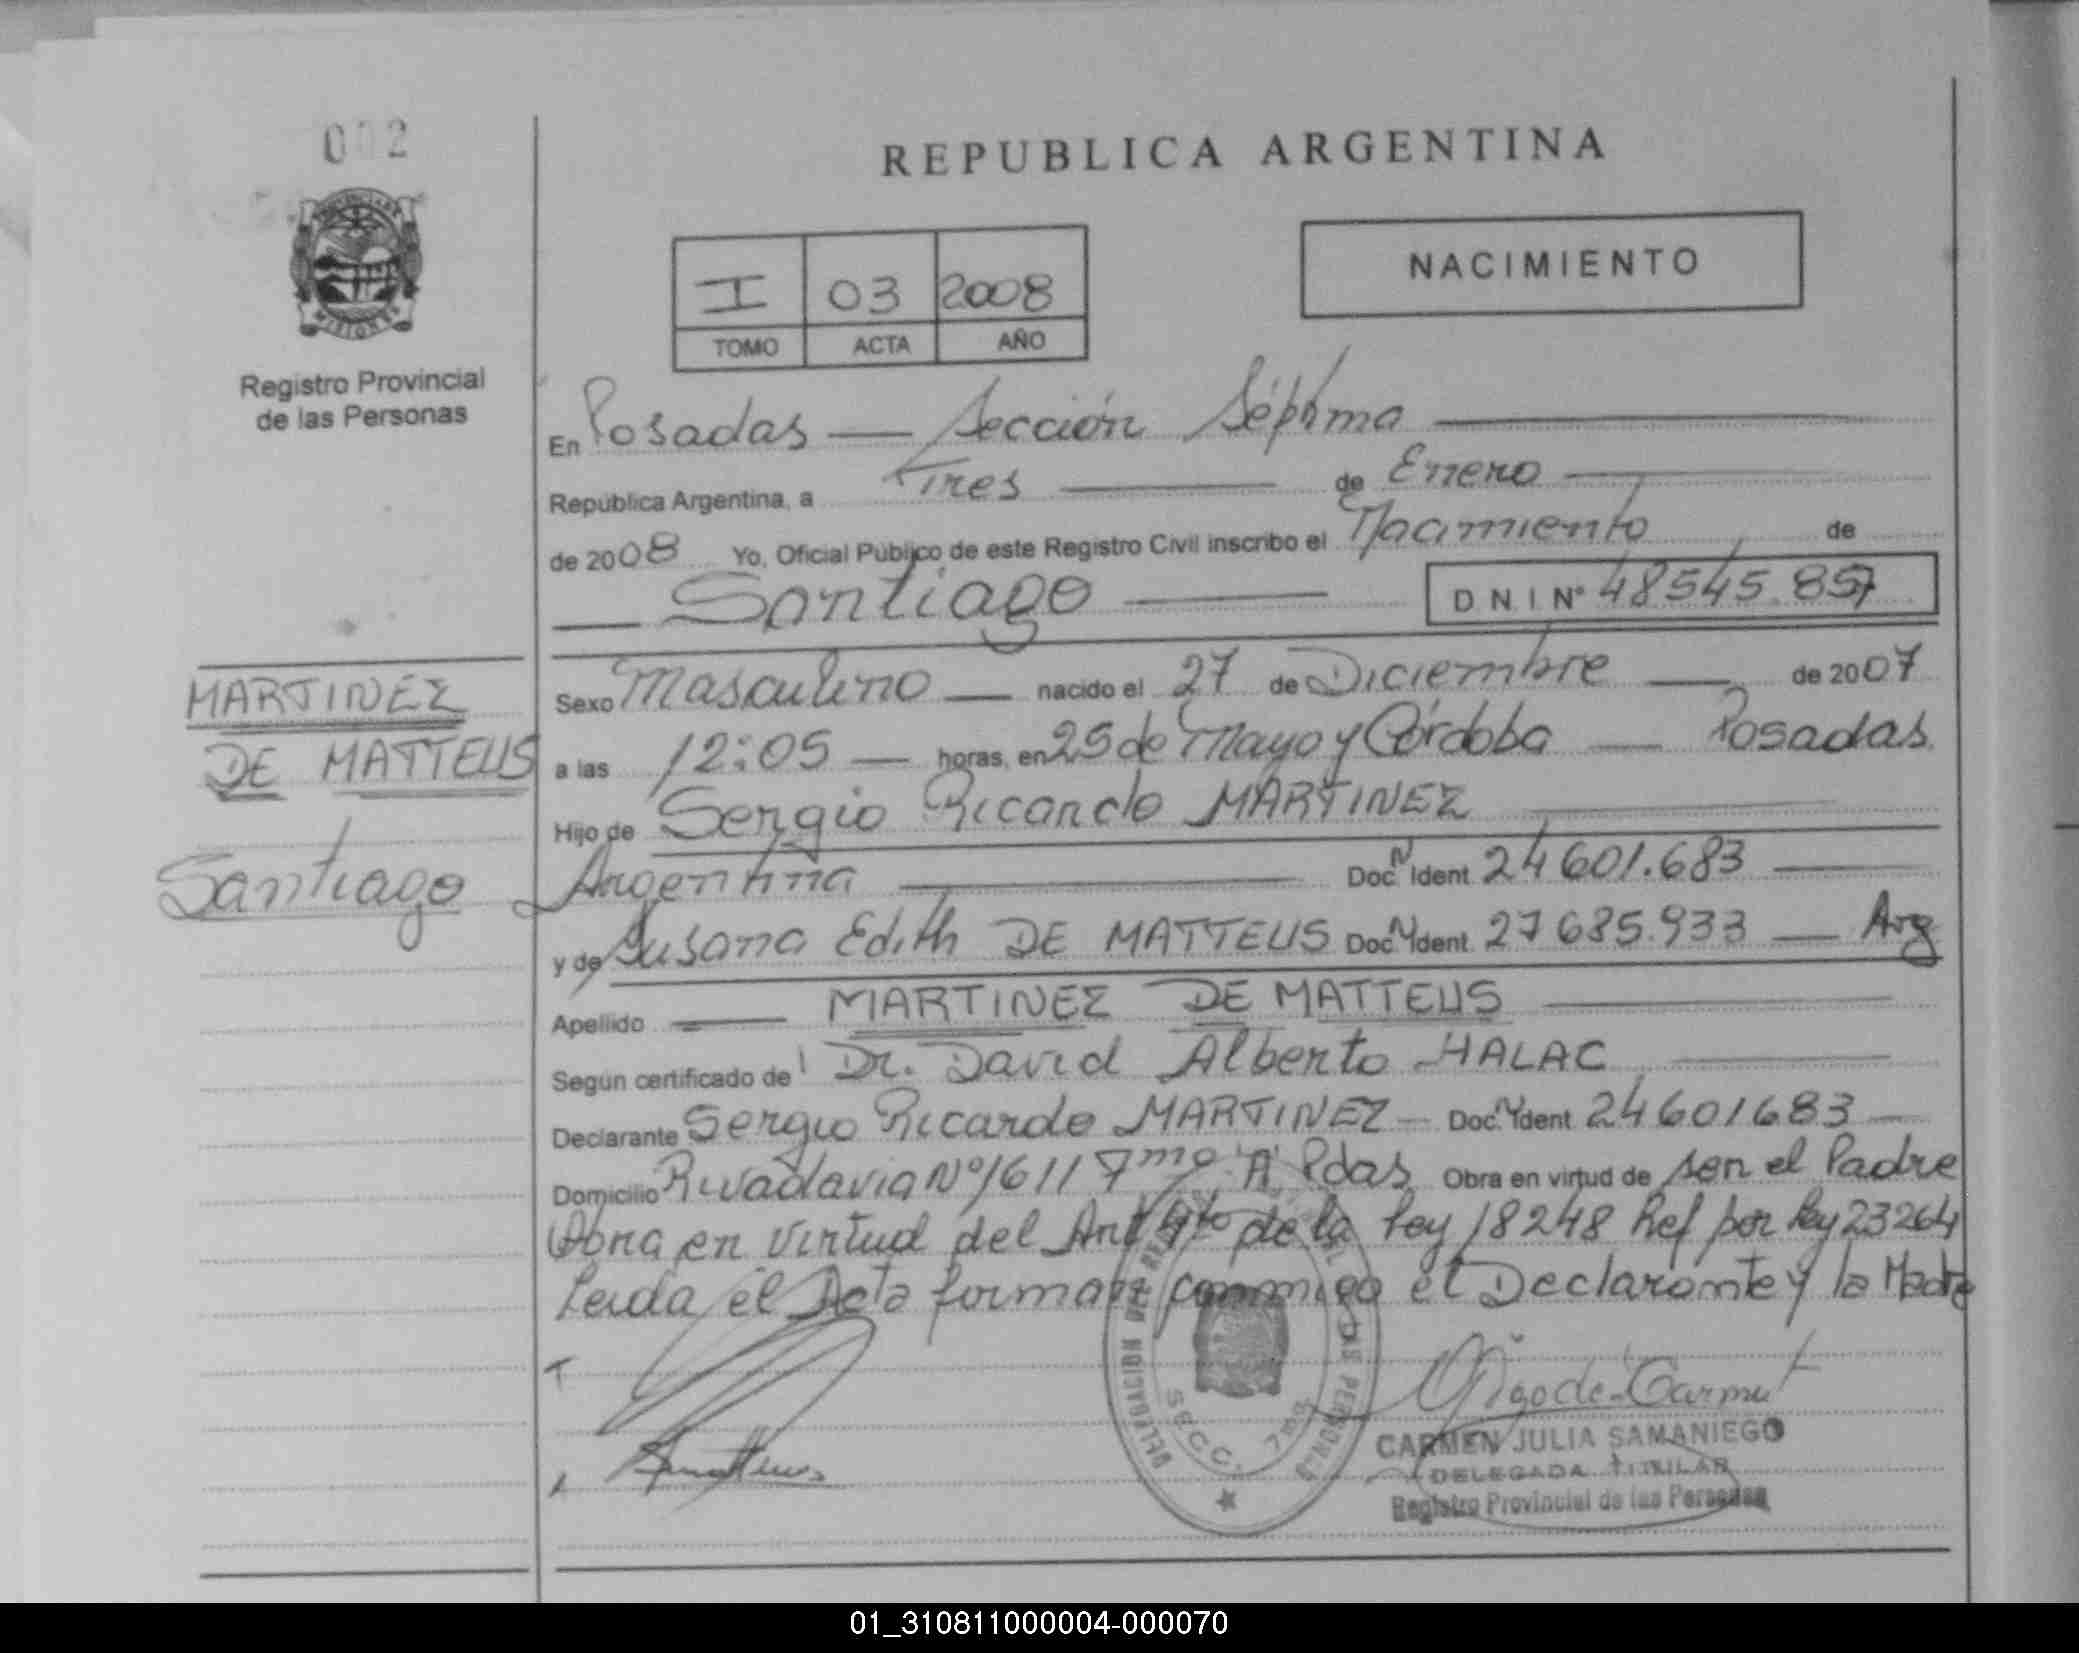 002
REPUBLICA ARGENTINA
MISIONES
Registro Provincial
de las Personas
I 03 2008
TOMO ACTA AÑO
NACIMIENTO
En Posadas — Sección Séptima
República Argentina, a Tres de Enero
de 2008 Yo, Oficial Público de este Registro Civil inscribo el Nacimiento de
Santiago
D N I Nº 48545.857
MARTINEZ
DE MATTEUS
Santiago
Sexo Masculino — nacido el 27 de Diciembre — de 2007
a las 12:05 — horas, en 25 de Mayo y Córdoba — Posadas
Hijo de Sergio Ricardo MARTINEZ
Argentina Doc. N Ident 24601.683
y de Susana Edith DE MATTEUS Doc. N Ident. 27685.933 — Arg
Apellido — MARTINEZ DE MATTEUS
Según certificado del Dr. David Alberto HALAC
Declarante Sergio Ricardo MARTINEZ — Doc. N Ident 24601683 —
Domicilio Rivadavia Nº 1611 7mo "A" Pdas Obra en virtud de ser el Padre
Obra en virtud del Art 4to de la Ley 18248 Ref por Ley 23264
Leida el Acta forman conmigo el Declarante y la Madre
DELEGACION DEL REG PERSONAS
SECC. 7ma
CARMEN JULIA SAMANIEGO
DELEGADA TITULAR
Registro Provincial de las Personas
01_310811000004-000070